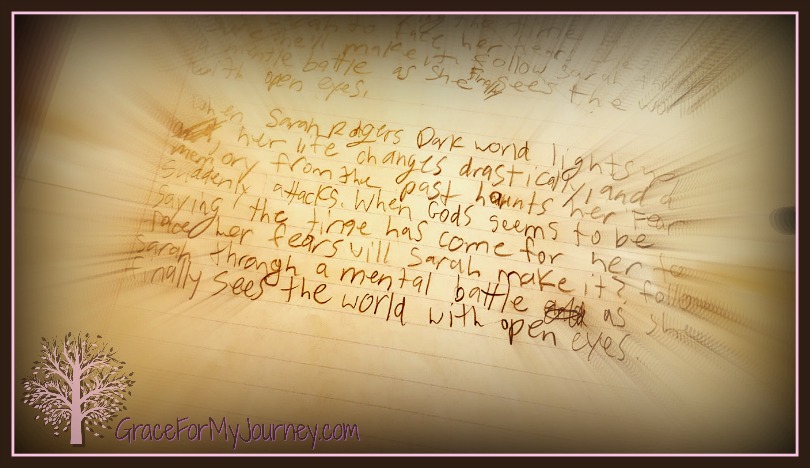 Sarah to face her fears
make it? follow Sarah thr
mentle battle as she finally sees the worl
with open eyes.
When Sarah Rodgers Dark world lights up
her life changes drastically, and a
memory from the past haunts her. Fear
Suddenly attacks. When Gods seems to be
saying the time has come for her to
face her fears will Sarah make it? follow
Sarah through a mental battle as she
finally sees the world with open eyes.
GraceForMyJourney.com